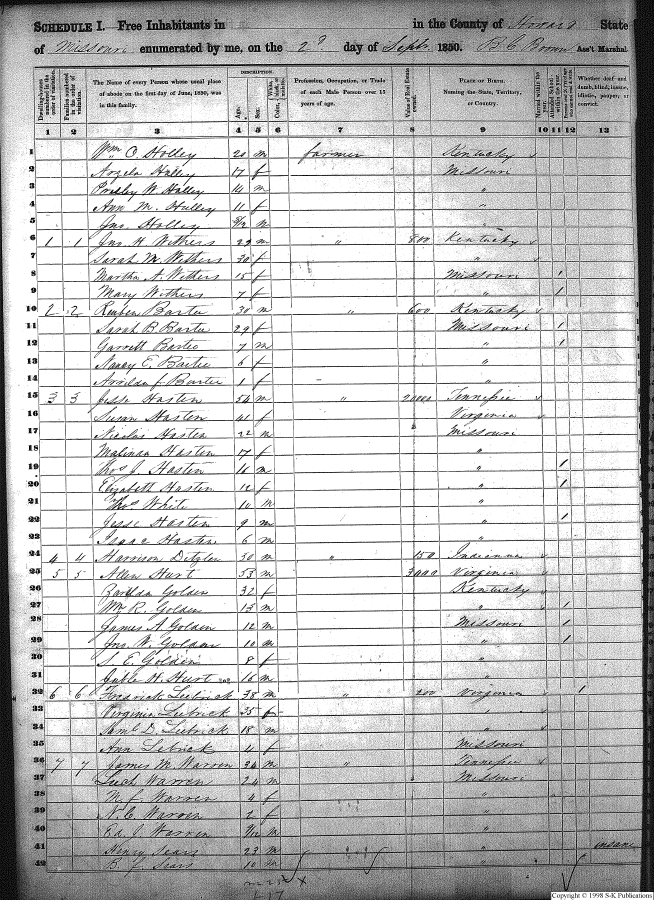 SCHEDULE I. Free Inhabitants in in the County of Howard State
of Missouri enumerated by me, on the 2d day of Septr. 1850. Ass't Marshal.
DESCRIPTION.
Dwelling-houses numbered in the order of visitation.
Families numbered in the order of visitation.
The Name of every Person whose usual place of abode on the first day of June, 1850, was in this family.
Age.
Sex.
Profession, Occupation, or Trade of each Male Person over 15 years of age.
Value of Real Estate owned.
PLACE OF BIRTH.
Naming the State, Territory, or Country.
Married within the year.
Attended School within the year.
Whether deaf and dumb, blind, insane, idiotic, pauper, or convict.
1 2 3 4 5 6 7 8 9 10 11 12 13
1 Wm O. Holley 20 m farmer Kentucky
2 Holley 17 f Missouri
3 Presley W Holley 14 m "
4 Ann M. Holley 11 f "
5 Jno. Holley m "
6 1 1 Jno. H. Withers 29 m " 800 Kentucky
7 Sarah M Withers 30 f "
8 Martha A. Withers 15 f Missouri 1
9 Mary Withers 7 f " 1
10 2 2 Reuben Barter 30 m " 600 Kentucky
11 Sarah B. Barter 29 f Missouri 1
12 Garrett Barter 7 m " 1
13 Nancy E. Barter 6 f "
14 Barter 1 f "
15 3 3 Jesse Hasten 54 m " Tennessee
16 Susan Hasten 41 f Virginia
17 Hasten 22 m Missouri
18 Malinda Hasten 17 f "
19 Thos J. Hasten m " 1
20 Elizabeth Hasten 12 f " 1
21 Thos White 10 m "
22 Jesse Hasten 9 m " 1
23 Isaac Hasten 6 m "
24 4 4 Harrison Ditzler 30 m " 150 Indianna
25 5 5 Allen Hurt 53 m 3000 Virginia
26 Golden 32 f Kentucky
27 Wm R. Golden m " 1
28 James A Golden 12 m Missouri 1
29 Jno. W. Golden 10 m " 1
30 S. E. Golden 8 f "
31 H. Hurt 16 m "
32 6 6 Fredrick Leebrick 38 m " 200 Virginia 1
33 Virginia Leebrick 35 f "
34 Saml D. Leebrick 18 m "
35 Ann Lebrick 4 f Missouri
36 7 7 James M Warren 34 m " Tennessee
37 Warren 24 m Missouri
38 M. J. Warren 4 f "
39 N. C. Warren 2 f "
40 Ed. J. Warren m "
41 Henry Sears 23 m " insane
42 B. F. Sears 10 m "
Copyright © 1998 S-K Publications